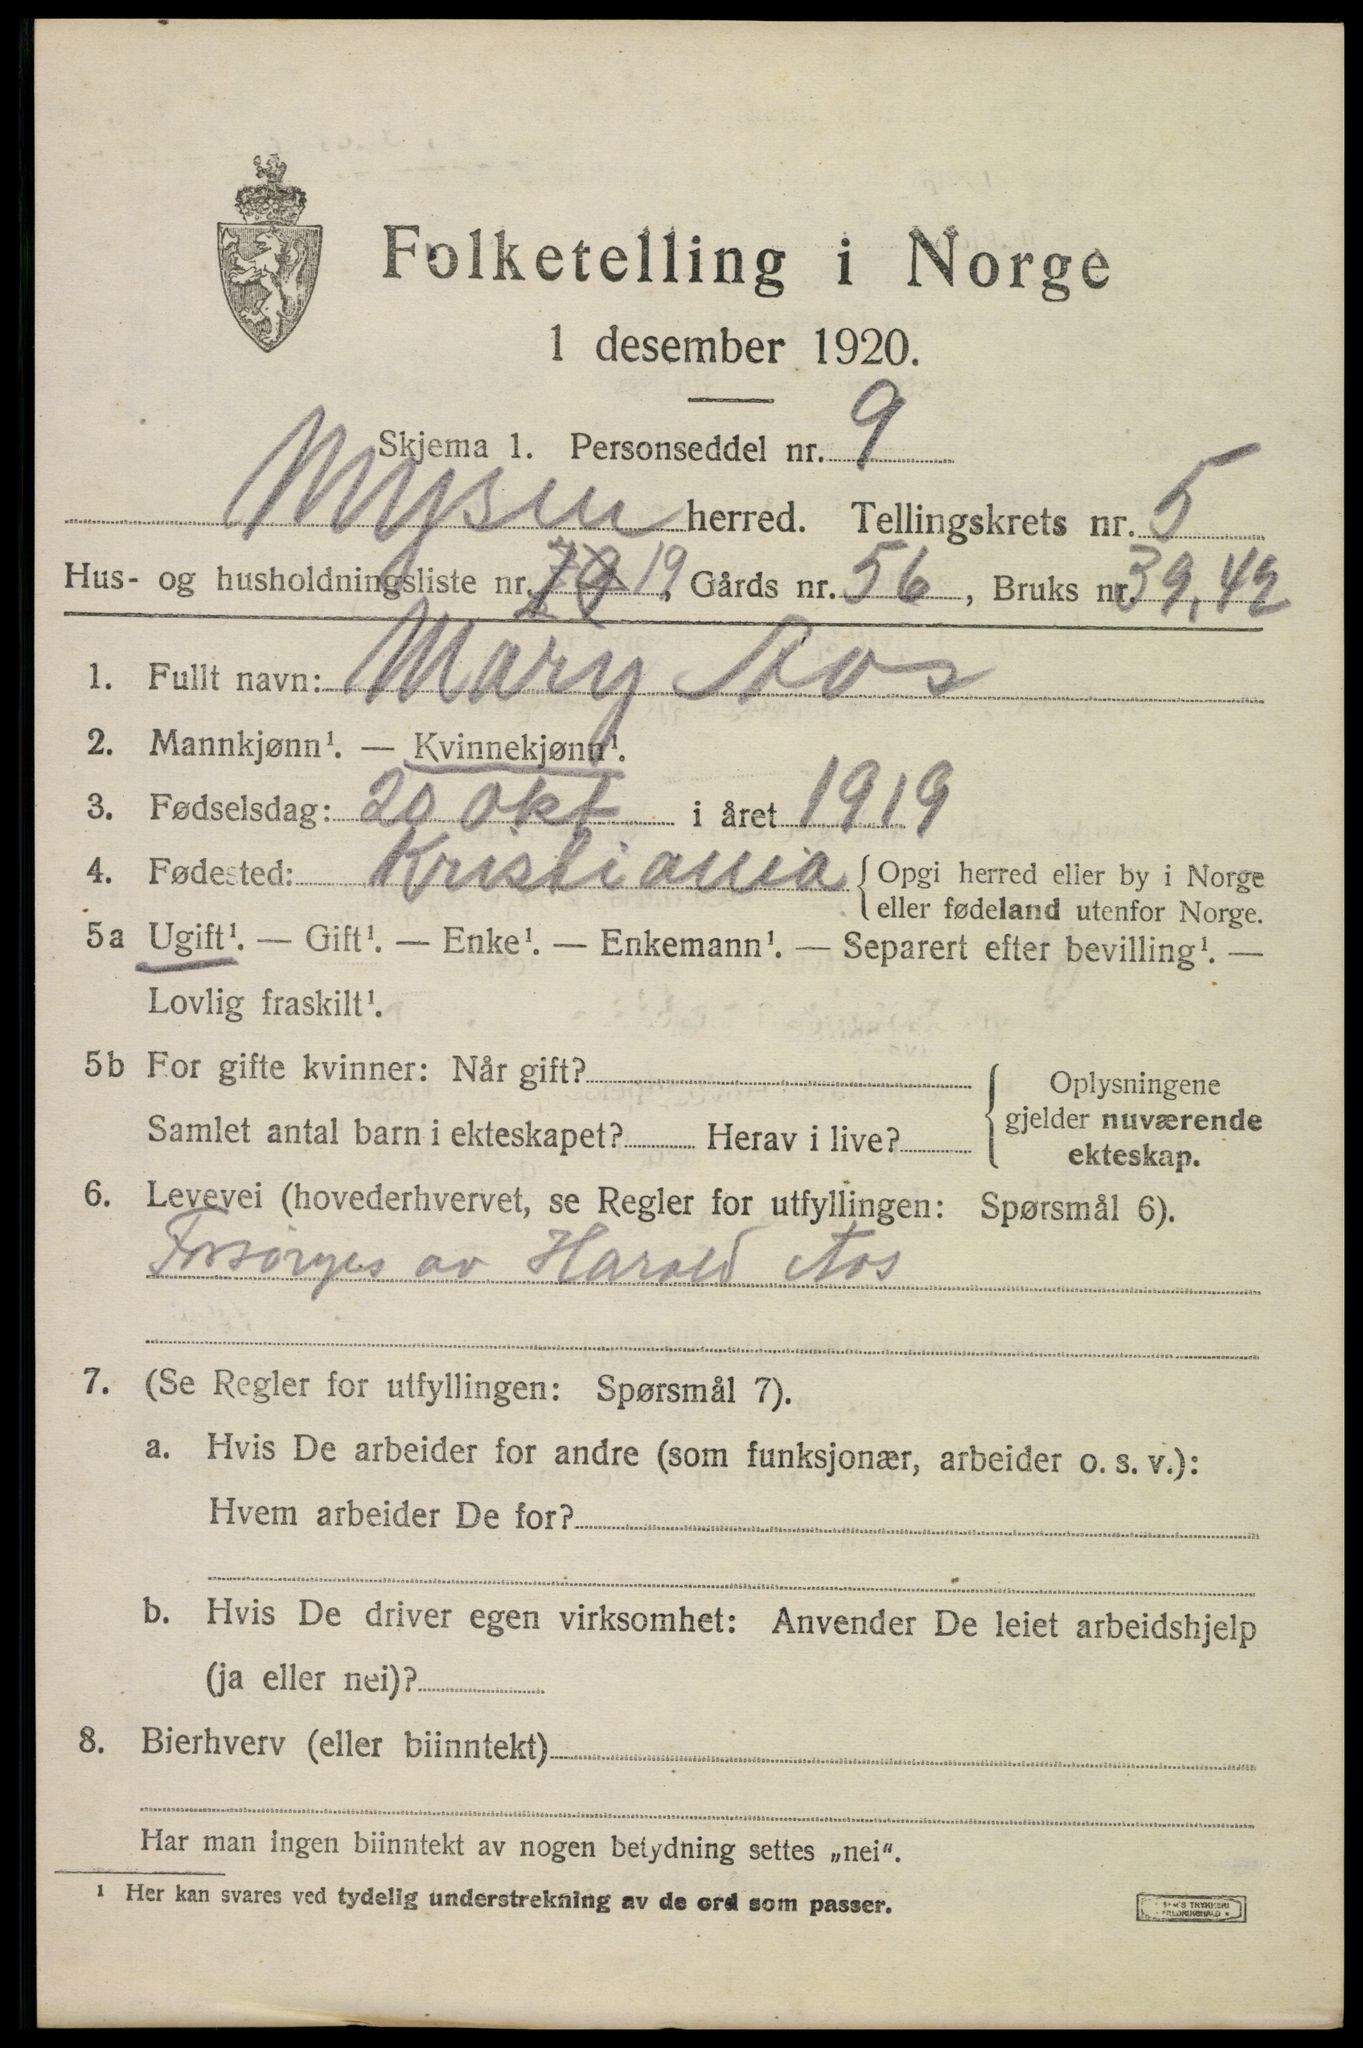 Folketelling i Norge
1 desember 1920.
Skjema 1. Personseddel nr. 9
Mysen herred. Tellingskrets nr. 5
Hus- og husholdningsliste nr. 19, Gårds nr. 56, Bruks nr. 39,42
1. Fullt navn: Mary Aos
2. Mannkjønn¹. — Kvinnekjønn¹.
3. Fødselsdag: 20 Okt i året 1919
4. Fødested: Kristiania { Opgi herred eller by i Norge
eller fødeland utenfor Norge.
5a Ugift¹. — Gift¹. — Enke¹. — Enkemann¹. — Separert efter bevilling¹. —
Lovlig fraskilt¹.
5b For gifte kvinner: Når gift? { Oplysningene
gjelder nuværende
ekteskap.
Samlet antal barn i ekteskapet? Herav i live?
6. Levevei (hovederhvervet, se Regler for utfyllingen: Spørsmål 6).
Forsørges av Harald Aos
7. (Se Regler for utfyllingen: Spørsmål 7).
a. Hvis De arbeider for andre (som funksjonær, arbeider o. s. v.):
Hvem arbeider De for?
b. Hvis De driver egen virksomhet: Anvender De leiet arbeidshjelp
(ja eller nei)?
8. Bierhverv (eller biinntekt)
Har man ingen biinntekt av nogen betydning settes „nei“.
¹ Her kan svares ved tydelig understrekning av de ord som passer.
TRYKKERI